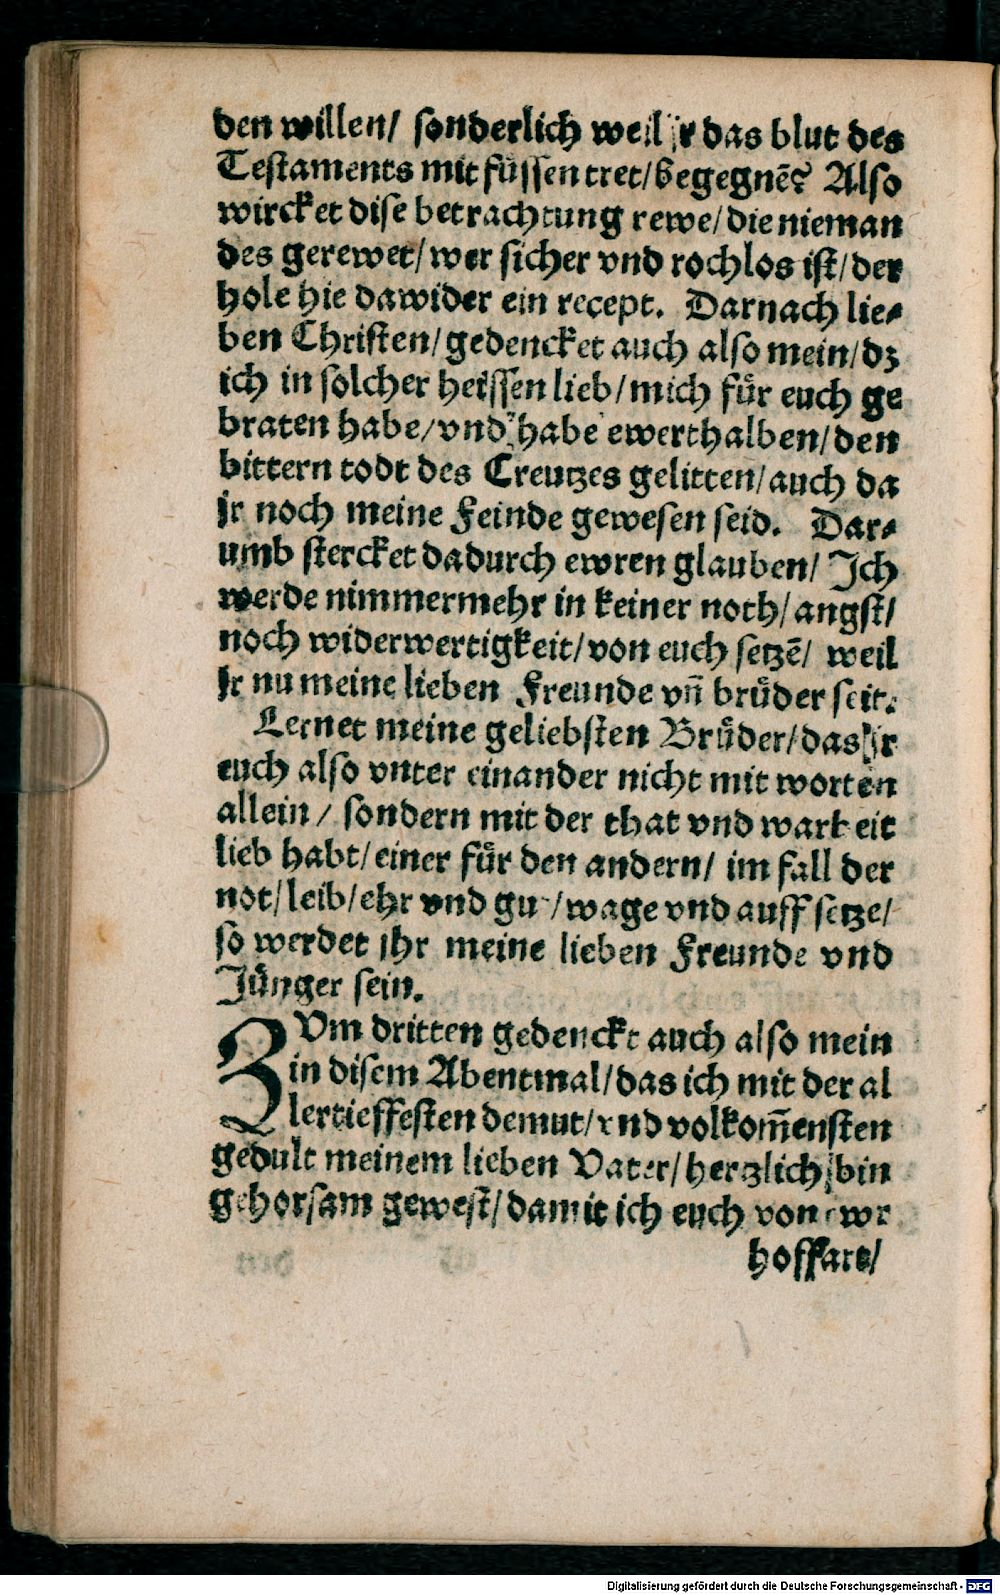 den willen/ sonderlich weil jr das blut des
Testaments mit füssen tret/begegnē? Also
wircket dise betrachtung rewe/die nieman
des gerewet/wer sicher vnd rochlos ist/der
hole hie dawider ein recept. Darnach lie⸗
ben Christen/gedencket auch also mein/dz
ich in solcher heissen lieb/mich fuͤr euch ge
braten habe/vnd habe ewerthalben/den
bittern todt des Creutzes gelitten/auch da
jr noch meine Feinde gewesen seid. Dar⸗
umb stercket dadurch ewren glauben/ Ich
werde nimmermehr in keiner noth/angst/
noch widerwertigkeit/von euch setzē/ weil
jr nu meine lieben Freunde vñ bruͤder seit.
Lernet meine geliebsten Bruͤder/das jr
euch also vnter einander nicht mit worten
allein/ sondern mit der that vnd warheit
lieb habt/einer fuͤr den andern/ im fall der
not/leib/ehr vnd gut/wage vnd auff setze/
so werdet ihr meine lieben Freunde vnd
Juͤnger sein.
ZVm dritten gedenckt auch also mein
in disem Abentmal/das ich mit der al
lertieffesten demut/vnd volkom̄ensten
gedult meinem lieben Vater/hertzlich bin
gehorsam gewest/damit ich euch von ewr
hoffart/
Digitalisierung gefördert durch die Deutsche Forschungsgemeinschaft - DFG